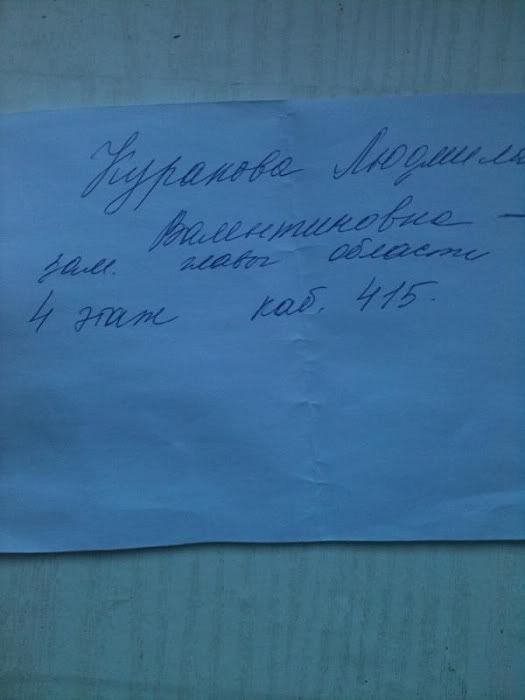 Куракова Людмила
Валентиновна –
зам. главы области
4 этаж каб. 415.